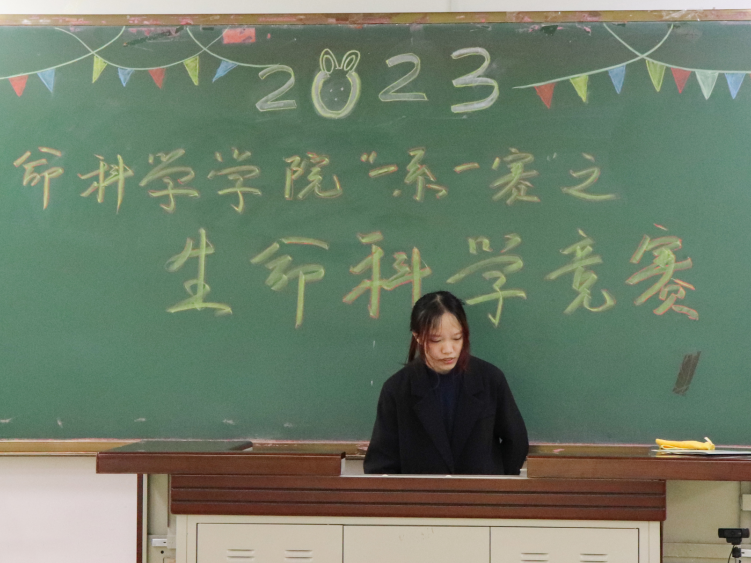 2023
命科学学院“一系一赛”之
生命科学竞赛